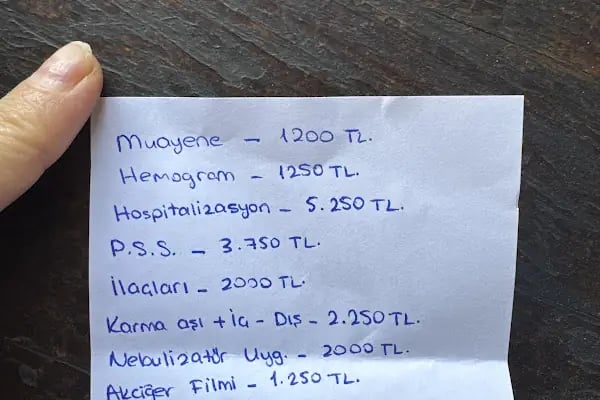 Muayene - 1200 TL.
Hemogram - 1250 TL.
Hospitalizasyon - 5.250 TL.
P.S.S. - 3.750 TL.
İlaçları - 2000 TL.
Karma aşı + İç - Dış - 2.250 TL.
Nebulizatör Uyg. - 2000 TL.
Akciğer Filmi - 1.250 TL.